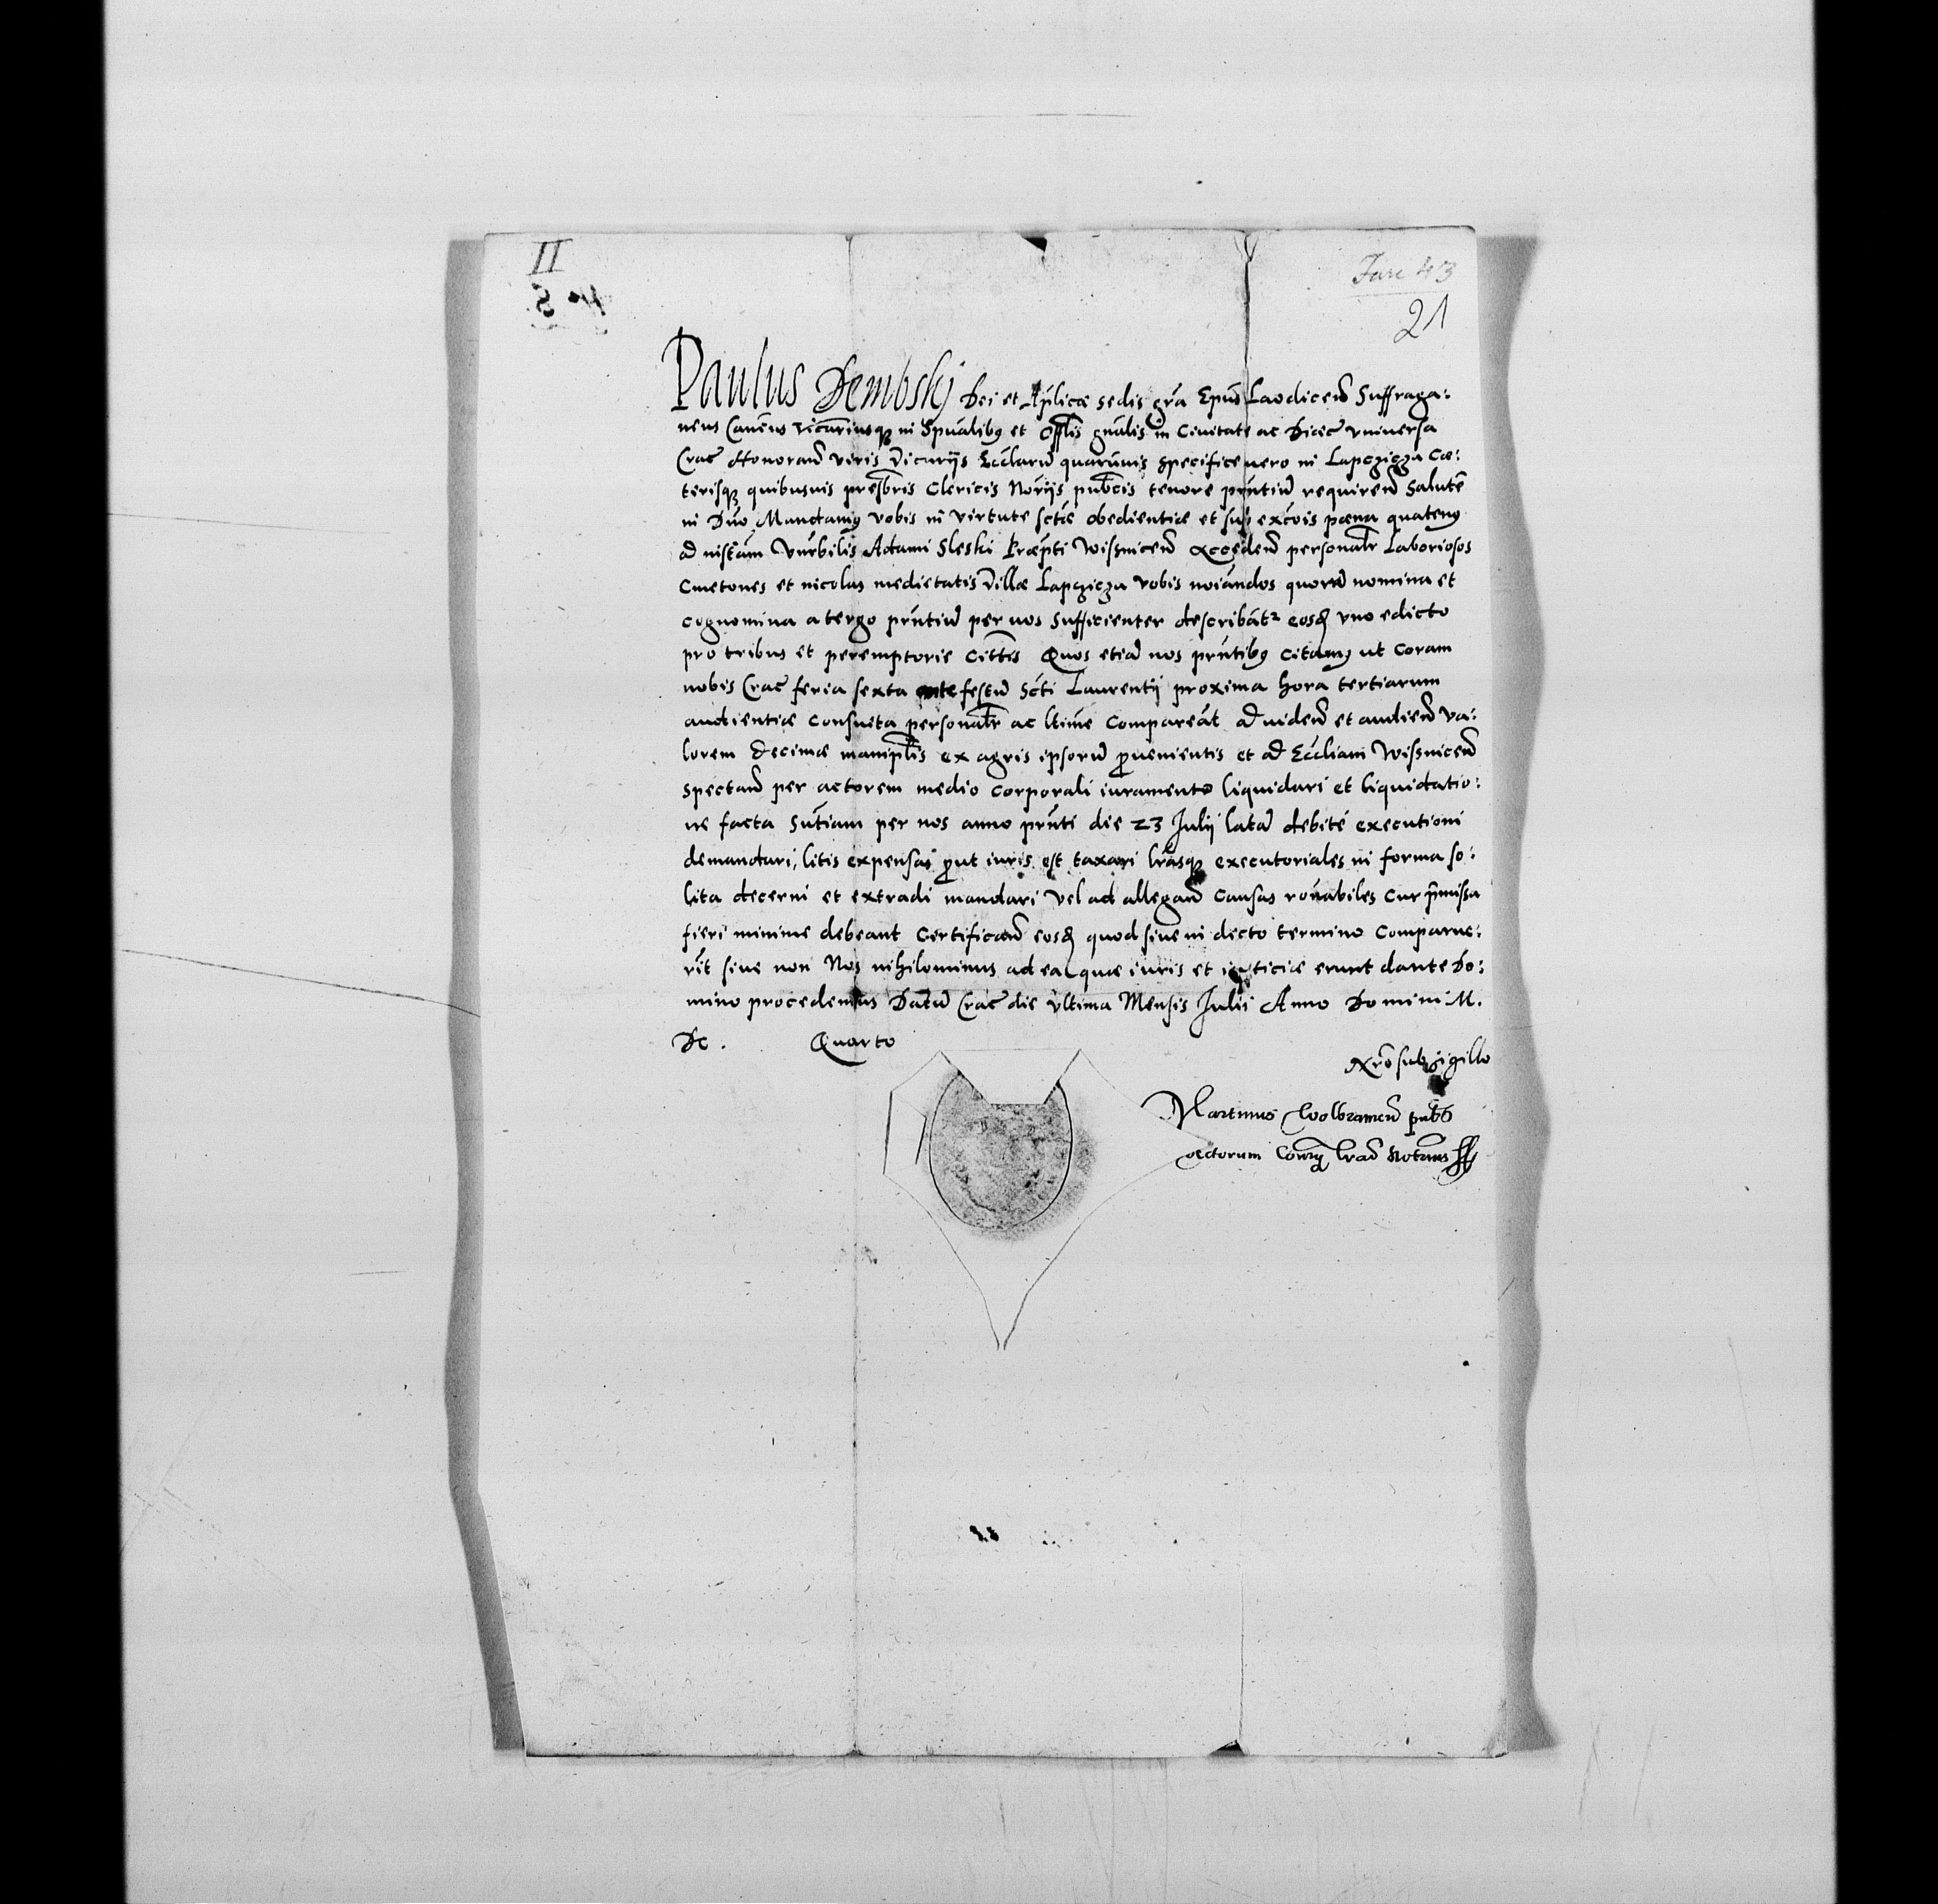 II
Fasc 43
21
Paulus Dembskj Dei et Aplicæ sedis gra Epus Laodicen Suffraga:
neus Canens Vicariusq in Spualibus et Offlis gnalis in Civitate ac Diœc vniversa
Crac Honoran viris Vicarijs Ecclarum quarumvis specifice vero in Lapczicza Cæ:
terisq quibusvis presbris Clericis Norijs pubcis tenore prntium requiren Salutem
in Dno Mandamus vobis in virtute sctæ obedientiæ et sub excois pœna quatenus
ad instam Vnrbilis Adami Sleski Præpti Wissnicen Acceden personalr Laboriosos
Cmetones et incolas medietatis Villæ Lapczicza vobis noiandos quorum nomina et
cognomina a tergo prntium per nos sufficienter describatr eosq vno edicto
pro tribus et peremptorie Cittis Quos etiam nos prntibus citamus ut Coram
nobis Crac feria sexta ante festum Scti Laurentij proxima hora tertiarum
audientiæ Consueta personalr ac ltime Compareat ad viden et audien va:
lorem Decimæ maniplis ex agris ipsorum provenientis et ad Eccliam Wissnicen
spectan per actorem medio Corporali iuramento liquidari et liquidatio:
ne facta Sntiam per nos anno prnti die 23 Julij latam debitè executioni
demandari, litis expensas prout iuris est taxari lrasq executoriales in forma so:
lita decerni et extradi mandari Vel ad allegan Causas ronabiles Cur præmissa
fieri minime debeant Certifican eosq quod sive in dicto termino Comparue:
rit sive non Nos nihilominus ad ea quæ iuris et iusticiæ erunt dante Do:
mino procedemus Datum Crac die Vltima Mensis Julii Anno Domini M.
Dc . Quarto
sub sigillo
Martinus Wolbramen pub
Actorum Notrius